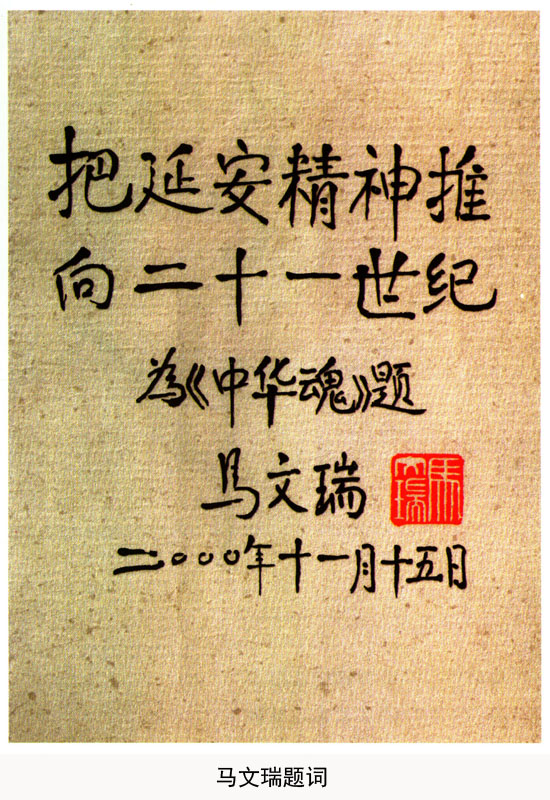 把延安精神推
向二十一世纪
为《中华魂》题
马文瑞
马文瑞
二〇〇〇年十一月十五日
马文瑞题词